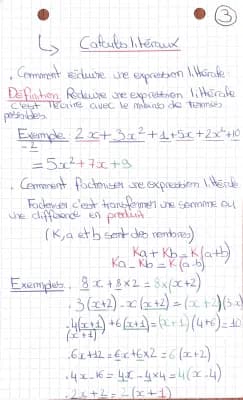 3
Calculs litéraux
. Comment réduire une expression littérale.
Définition Réduire une expression littérale
c'est l'écrire avec le moins de termes
possibles.
Exemple 2x + 3x² + 1 + 5x + 2x² + 10
-2
= 5x² + 7x + 9
. Comment factoriser une expression littérale
Factoriser c'est transformer une somme ou
une différence en produit
(K, a et b sont des nombres)
Ka + Kb = K(a+b)
Ka - Kb = K(a-b)
Exemples . 8x + 8×2 = 8×(x+2)
. 3(x+2) - x(x+2) = (x+2)(3-x)
. 4(x+1) + 6(x+1) = (x+1)(4+6) = 10
(x+1)
. 6x+12 = 6x+6×2 = 6(x+2)
. 4x-16 = 4x-4×4 = 4(x-4)
. 2x+2 = 2(x+1)